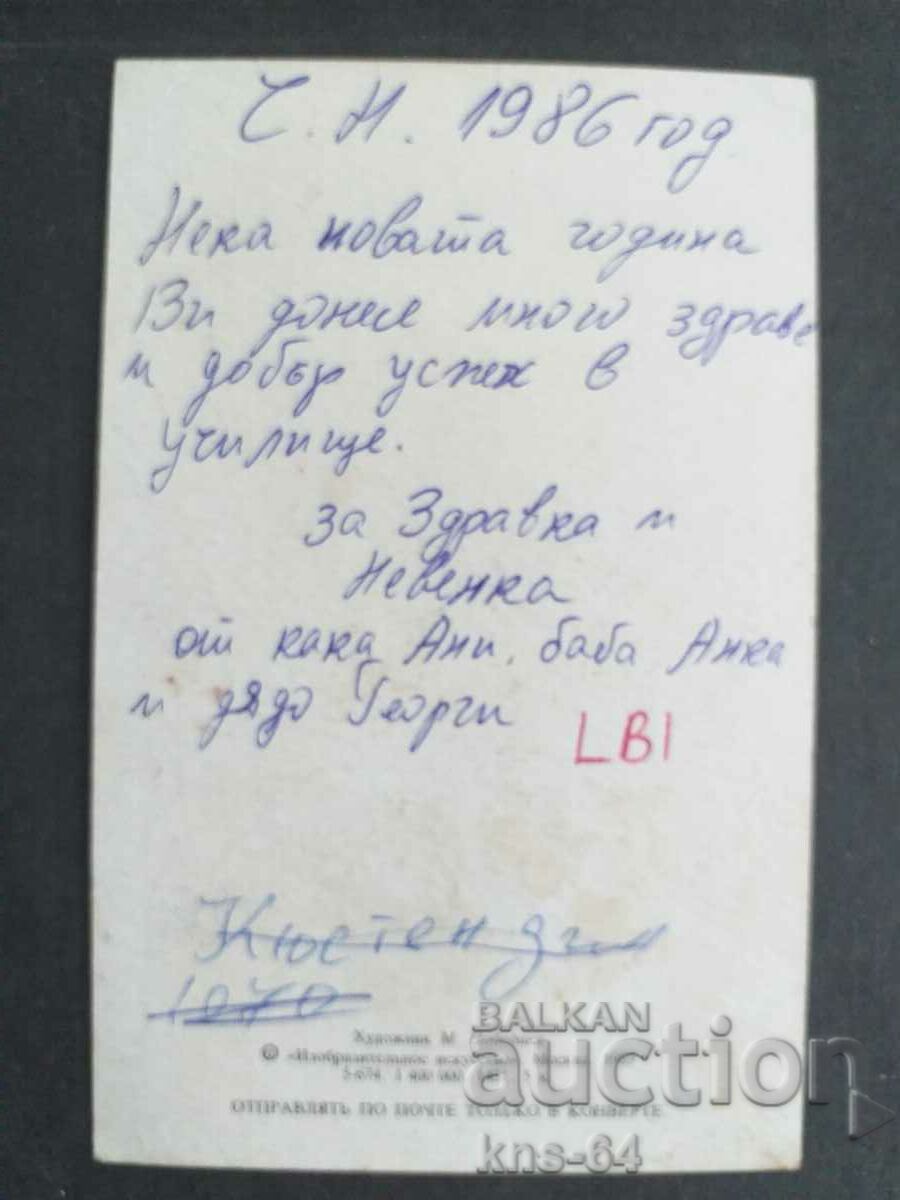 Ч. Н. 1986 год
Нека новата година
Ви донесе много здраве
и добър успех в
училище.
за Здравка и
Невенка
от кака Ани, баба Анка
и дядо Георги
LBI
Кюстендил
Художник М.
© «Изобразительное искусство». Москва.
5-674.
ОТПРАВЛЯТЬ ПО ПОЧТЕ ТОЛЬКО В КОНВЕРТЕ
BALKAN
auction
kns-64